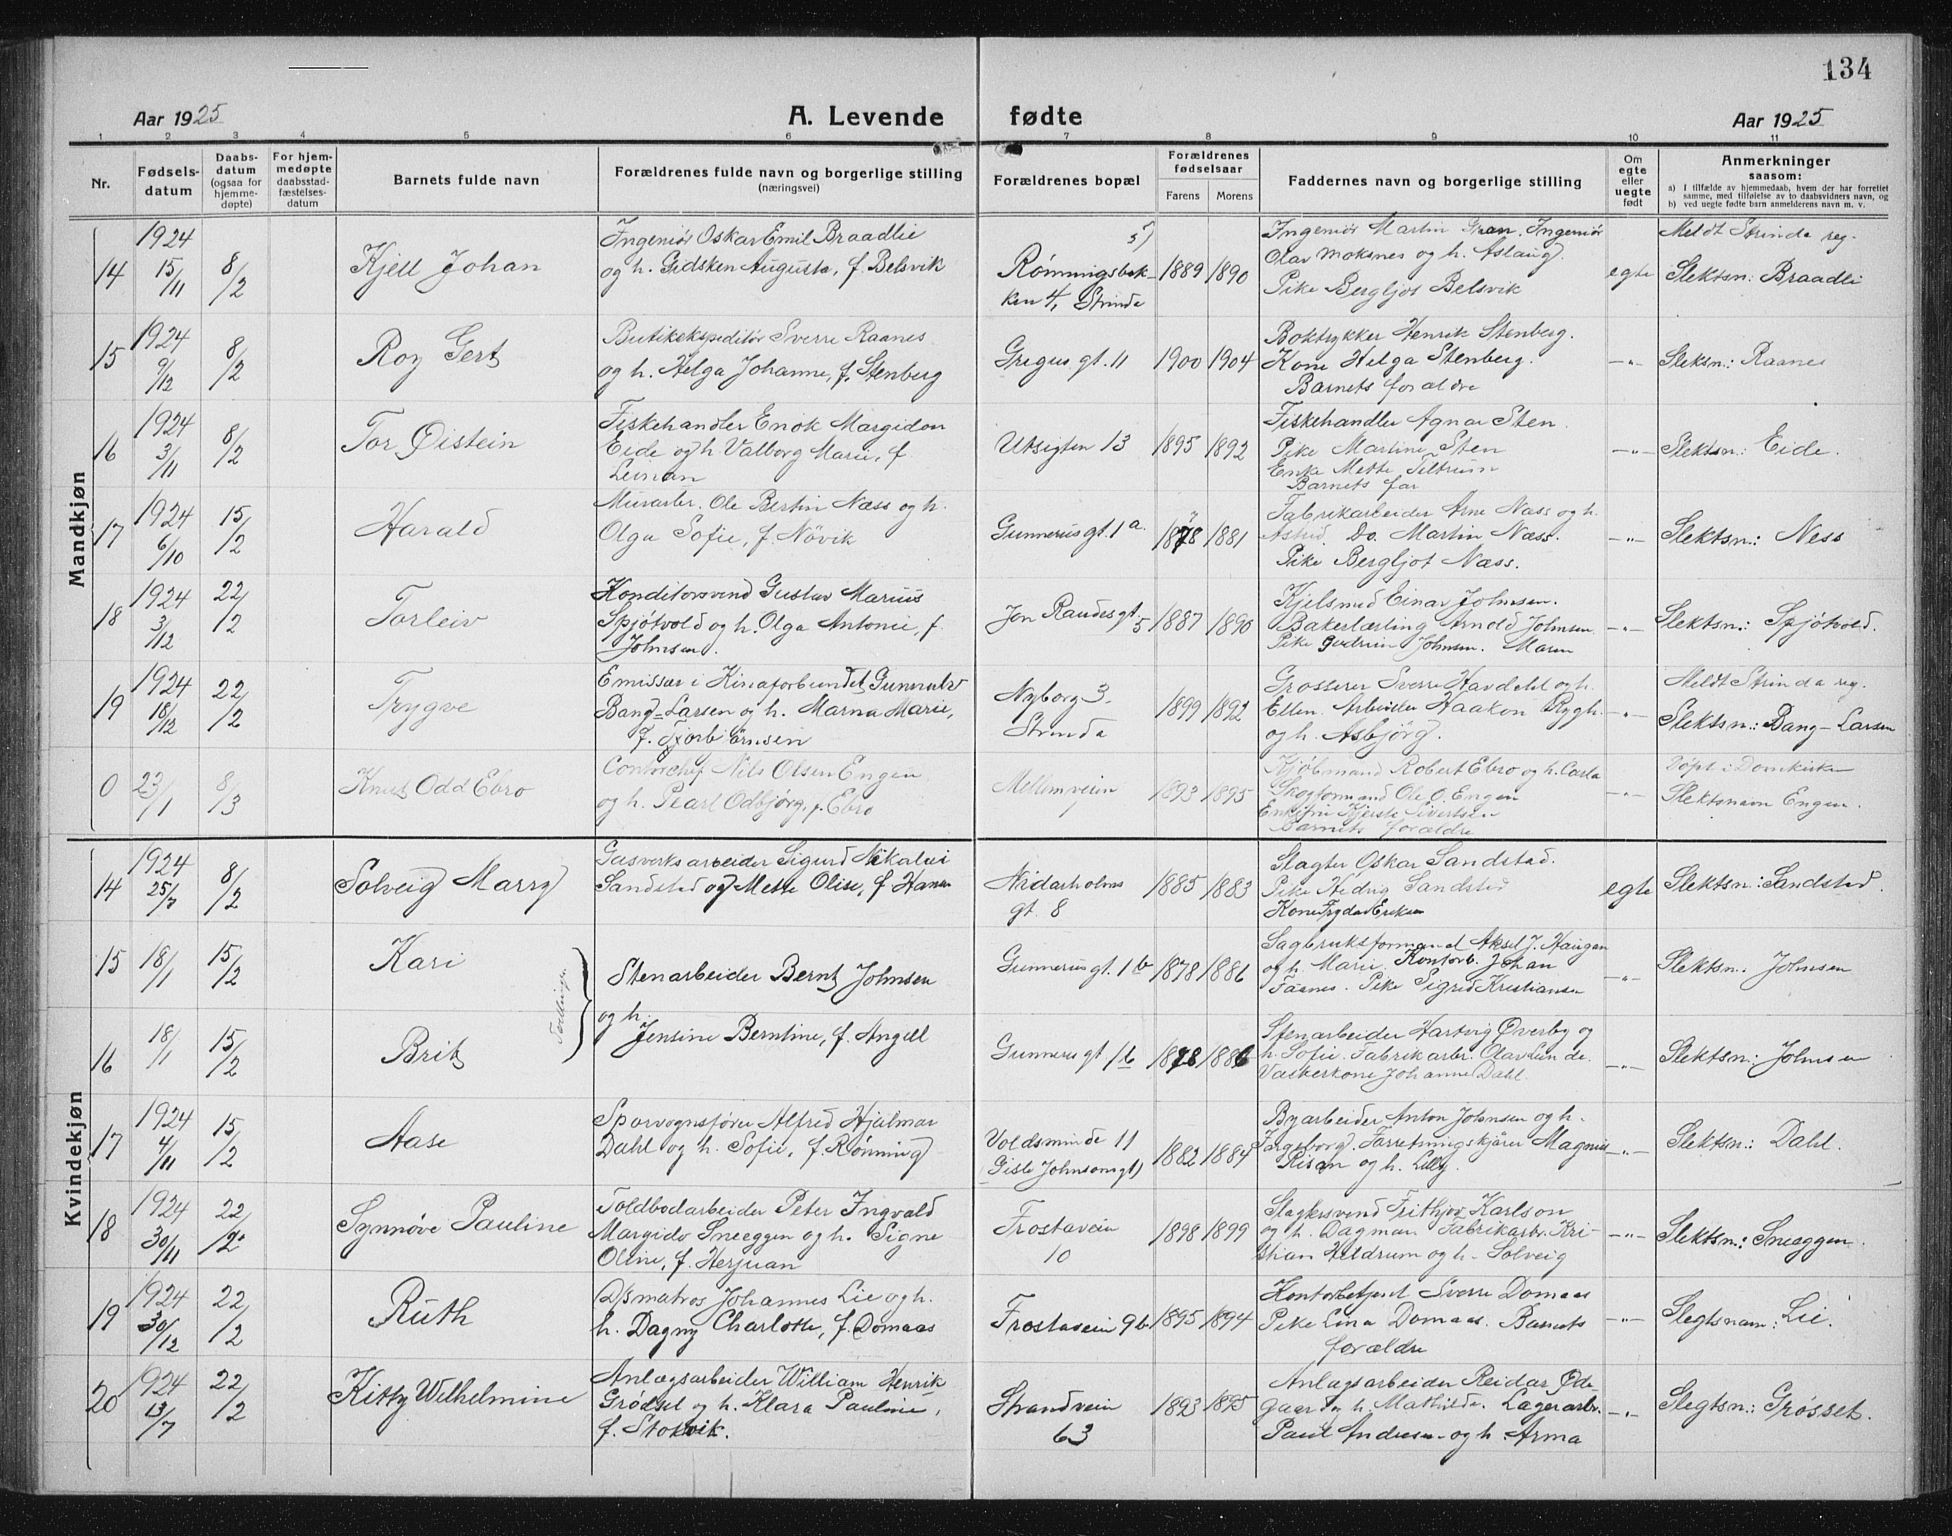 134
Aar 1925 A. Levende fødte Aar 1925
1 2 3 4 5 6 7 8 9 10 11
Nr. Fødselsdatum Daabsdatum (ogsaa for hjemmedøpte) For hjemmedøpte daabsstadfæstelsesdatum Barnets fulde navn Forældrenes fulde navn og borgerlige stilling (næringsvei) Forældrenes bopæl Forældrenes fødselsaar Farens Morens Faddernes navn og borgerlige stilling Om egte eller uegte født Anmerkninger saasom:
a) I tilfælde av hjemmedaab, hvem der har forrettet samme, med tilføielse av to daabsvidners navn, og
b) ved uegte fødte barn anmelderens navn m. v.
Mandkjøn
14 1924 15/11 8/2 Kjell Johan
Ingeniør Oskar Emil Braadlie
og h. Gidsken Augusta, f. Belsvik
Rønningsbek-
ken 4, Strinda
1889 1890
Ingeniør Martin Gran. Ingeniør
Olav Moksnes og h. Aslaug.
Pike Bergljot Belsvik
egte
Meldt Strinda reg.
Slektsn: Braadli
15 1924 9/12 8/2 Roy Gert
Butikekspeditør Sverre Raanes
og h. Helga Johanne, f. Stenberg
Gregus gt. 11 1900 1904
Boktrykker Henrik Stenberg.
Kone Helga Stenberg.
Barnets forældre
-"- Sleksn: Raanes
16 1924 3/11 8/2 Tor Øistein
Fiskehandler Enok Margidon
Eide og h. Valborg Marie, f.
Leinan
Utsigten 13 1895 1892
Fiskehandler Agnar Sten.
Pike Martine Sten
Enke Mette Tiltrum
Barnets far
-"- Slektsn: Eide.
17 1924 6/10 15/2 Harald
Murarbr. Ole Bertin Næss og h.
Olga Sofie, f. Növik
Gunnerus gt. 1 a. 1878 1881
Fabrikarbeider Arne Næss og h.
Astrid. Do. Martin Næss.
Pike Bergljot Næss.
-"- Slektsn: Ness
18 1924 3/12 22/2 Torleiv
Konditorsvend Gustav Marius
Spjötvold og h. Olga Antonie, f.
Johnsen.
Jon Raudes gt. 5 1887 1890
Kjelsmed Einar Johnsen.
Bakerlærling Arnold Johnsen
Pike Gudrun Johnsen. Moren
-"- Slektsn: Spjötvold.
19 1924 18/12 22/2 Trygve
Emissær i Kinaforbundet Gunnulv
Bang-Larsen og h. Marna Marie,
Nyborg 3.
Strinda
1899 1892
Grosserer Sverre Havdahl og h.
Ellen. Arbeider Haakon Rygh.
og h. Asbjörg.
-"-
Meldt Strinda reg.
Slektsn: Bang-Larsen
0 23/1 8/3 Knut Odd Ebro
Contorchef Nils Olsen Engen
og h. Pearl Odbjørg, f. Ebro
Mellemveien
1
1893 1895
Kjøbmand Robert Ebro og h. Carla
Skogformand Ole O. Engen
Enkefru Kjerste Sivertsen
Barnets forældre
-"-
Døpt i Domkirken
Slektsnavn Engen.
Kvindekjøn
14 1924 25/7 8/2 Solveig Marry
Gasverksarbeider Sigurd Nikolai
Sandstad og Mette Olise, f. Hansen
Nidarholms
gt. 8
1885 1883
Slagter Oskar Sandstad.
Pike Hedvig Sandstad
Kone Fryda Eriksen
egte Slektsn: Sandstad.
15 18/1 15/2 Kari
Tvillinger
Stenarbeider Bernt Johnsen
og h.
Jensine Berntine, f. Angell
Gunnerus gt. 1 b 1878 1886
Sagbruksformand Aksel J. Haugan
og h. Marie. Kontorb. Johan
Faanes. Pike Sigrid Kristiansen
-"- Slektsn. Johnsen
16 18/1 15/2 Brit
Gunnerus gt 1 b 1878 1886
Stenarbeider Hartvig Øverby og
h. Sofie. Fabrikarbr. Olav Lunde.
Vaskerkone Johanne Dahl.
-"- Slektsn: Johnsen
17 1924 4/11 15/2 Aase
Sporvognsfører Alfred Hjalmar
Dahl og h. Sofie, f. Rønning
Voldsminde 11
(Gisle Johnsonsgt)
1882 1884
Byarbeider Anton Johnsen og h.
Ingeborg. Forretningskjører Magnus
Risan og h. Lilly.
-"- Slektsn: Dahl.
18 1924 30/11 22/2 Synnøve Pauline
Toldbodarbeider Peter Ingvald
Margido Sneeggen og h. Signe
Oline, f. Herjuan
Frostaveien
10
1898 1899
Slagtersvend Frithjov Karlson
og h. Dagmar. Fabrikarbr. Kri-
stian Heldrum og h. Solveig
-"- Slektsn: Sneeggen.
19 1924 30/12 22/2 Ruth
D/s matros Johannes Lie og h.
h. Dagny Charlotte, f. Domaas
Frostaveien 9b 1895 1894
Kontorbetjent Sverre Domaas
Pike Lina Domaas. Barnets
forældre
-"- Slegtsnavn: Lie.
20 1924 13/7 22/2 Kitty Wilhelmine
Anlægsarbeider William Henrik
Grødset og h. Klara Pauline,
f. Stokvik.
Strandveien
63
1893 1895
Anlægsarbeider Reidar Øde-
gaard og h. Mathilde. Lagerarbr.
Paul Andresen og h. Arma
-"- Slegtsn: Grösset.